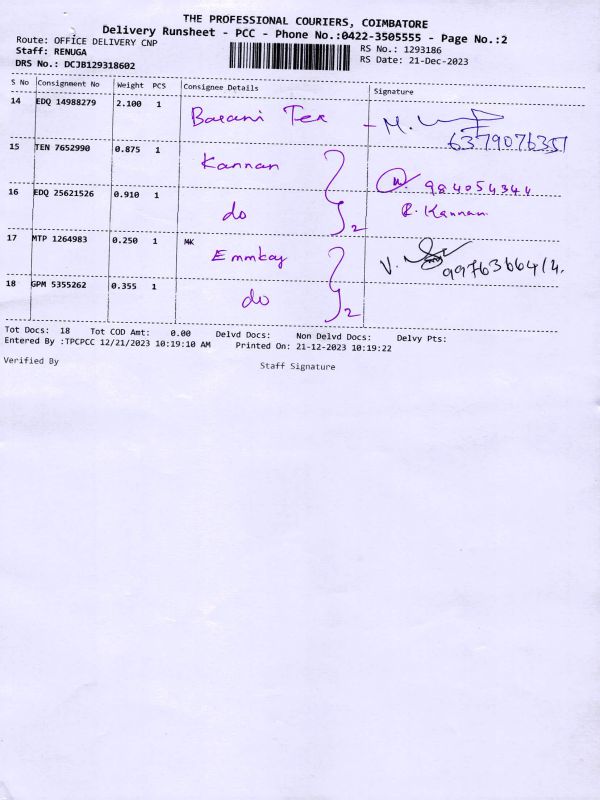 THE PROFESSIONAL COURIERS, COIMBATORE
Delivery Runsheet - PCC - Phone No.:0422-3505555 - Page No.:2
Route: OFFICE DELIVERY CNP
RS No.: 1293186
Staff: RENUGA
RS Date: 21-Dec-2023
DRS No.: DCJB129318602
S No Consignment No Weight PCS Consignee Details Signature
14 EDQ 14988279 2.100 1 Barani Tex - M.
6379076351
15 TEN 7652990 0.875 1 Kannan
984054344
16 EDQ 25621526 0.910 1 do 2 R. Kannan
17 MTP 1264983 0.250 1 MK Emmkay V.
9976366414.
18 GPM 5355262 0.355 1 do 2
Tot Docs: 18 Tot COD Amt: 0.00 Delvd Docs: Non Delvd Docs: Delvy Pts:
Entered By :TPCPCC 12/21/2023 10:19:10 AM Printed On: 21-12-2023 10:19:22
Verified By Staff Signature